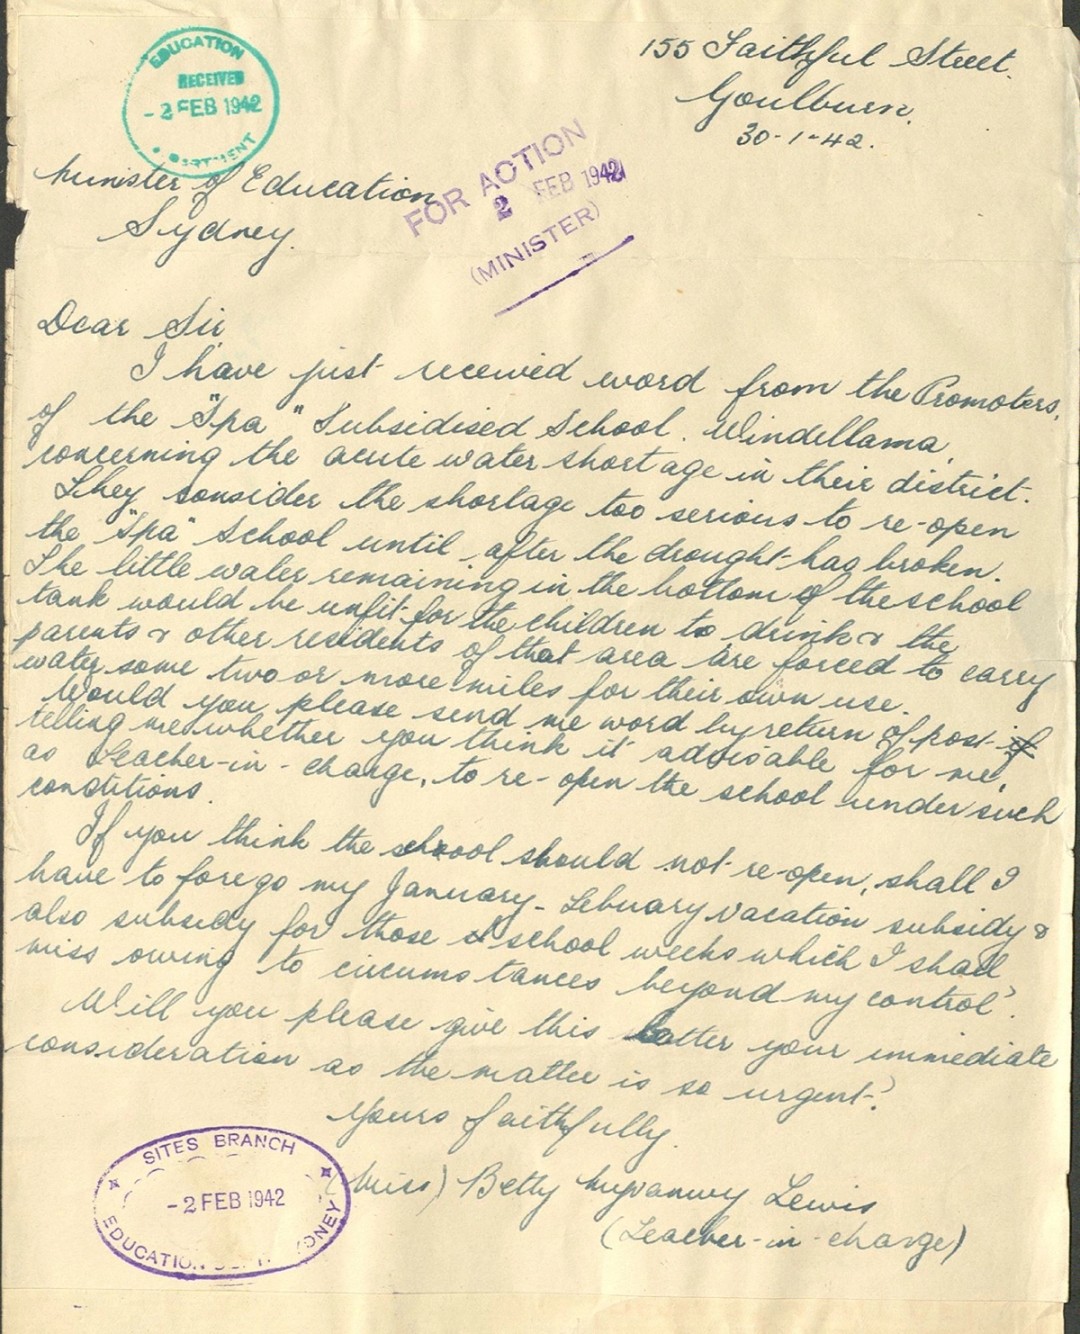 155 Faithful Street.
Goulburn.
30-1-42.
EDUCATION
RECEIVED
- 2 FEB 1942
Minister of Education
Sydney.
FOR ACTION
2 FEB 1942
(MINISTER)
Dear Sir,
I have just received word from the Promoters,
of the "Spa" Subsidised School. Windellama,
concerning the acute water shortage in their district.
They consider the shortage too serious to re-open
the "Spa" School until after the drought has broken.
The little water remaining in the bottom of the school
tank would be unfit for the children to drink & the
parents & other residents of that area are forced to carry
water some two or more miles for their own use.
Would you please send me word by return of post if
telling me whether you think it advisable for me,
as Teacher-in-charge, to re-open the school under such
conditions.
If you think the school should not re-open, shall I
have to forego my January-Febuary vacation subsidy &
also subsidy for those school weeks which I shall
miss owing to circumstances beyond my control?
Will you please give this latter your immediate
consideration as the matter is so urgent?
Yours faithfully.
(Miss) Betty Myvanwy Lewis
(Teacher-in-charge)
SITES BRANCH
- 2 FEB 1942